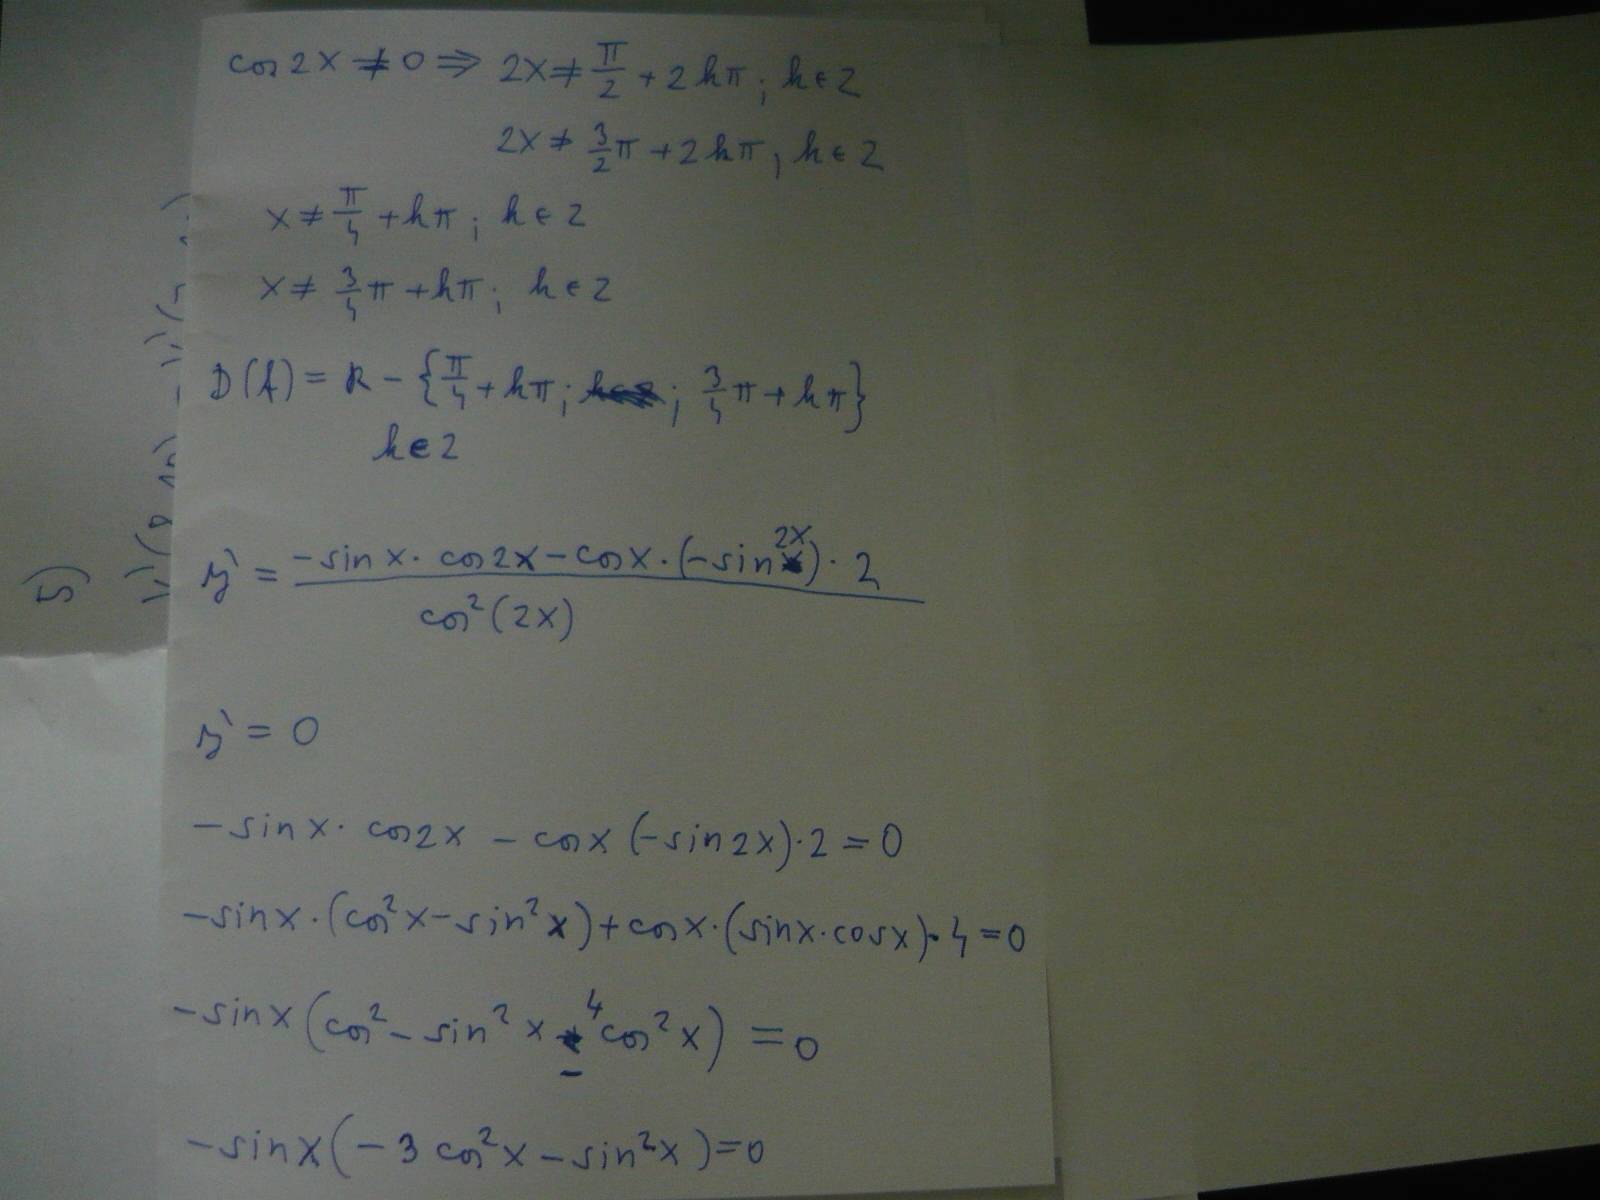 cos 2x ≠ 0 ⇒ 2x ≠ π/2 + 2kπ ; k ∈ Z
2x ≠ 3/2 π + 2kπ ; k ∈ Z
x ≠ π/4 + kπ ; k ∈ Z
x ≠ 3/4 π + kπ ; k ∈ Z
D(f) = R − {π/4 + kπ ; ; 3/4 π + kπ}
k ∈ Z
y' = (−sin x · cos 2x − cos x · (−sin 2x) · 2) / cos²(2x)
y' = 0
−sin x · cos 2x − cos x (−sin 2x) · 2 = 0
−sin x · (cos² x − sin² x) + cos x · (sin x · cos x) · 4 = 0
−sin x (cos² − sin² x − 4 cos² x) = 0
−sin x (−3 cos² x − sin² x) = 0
5)